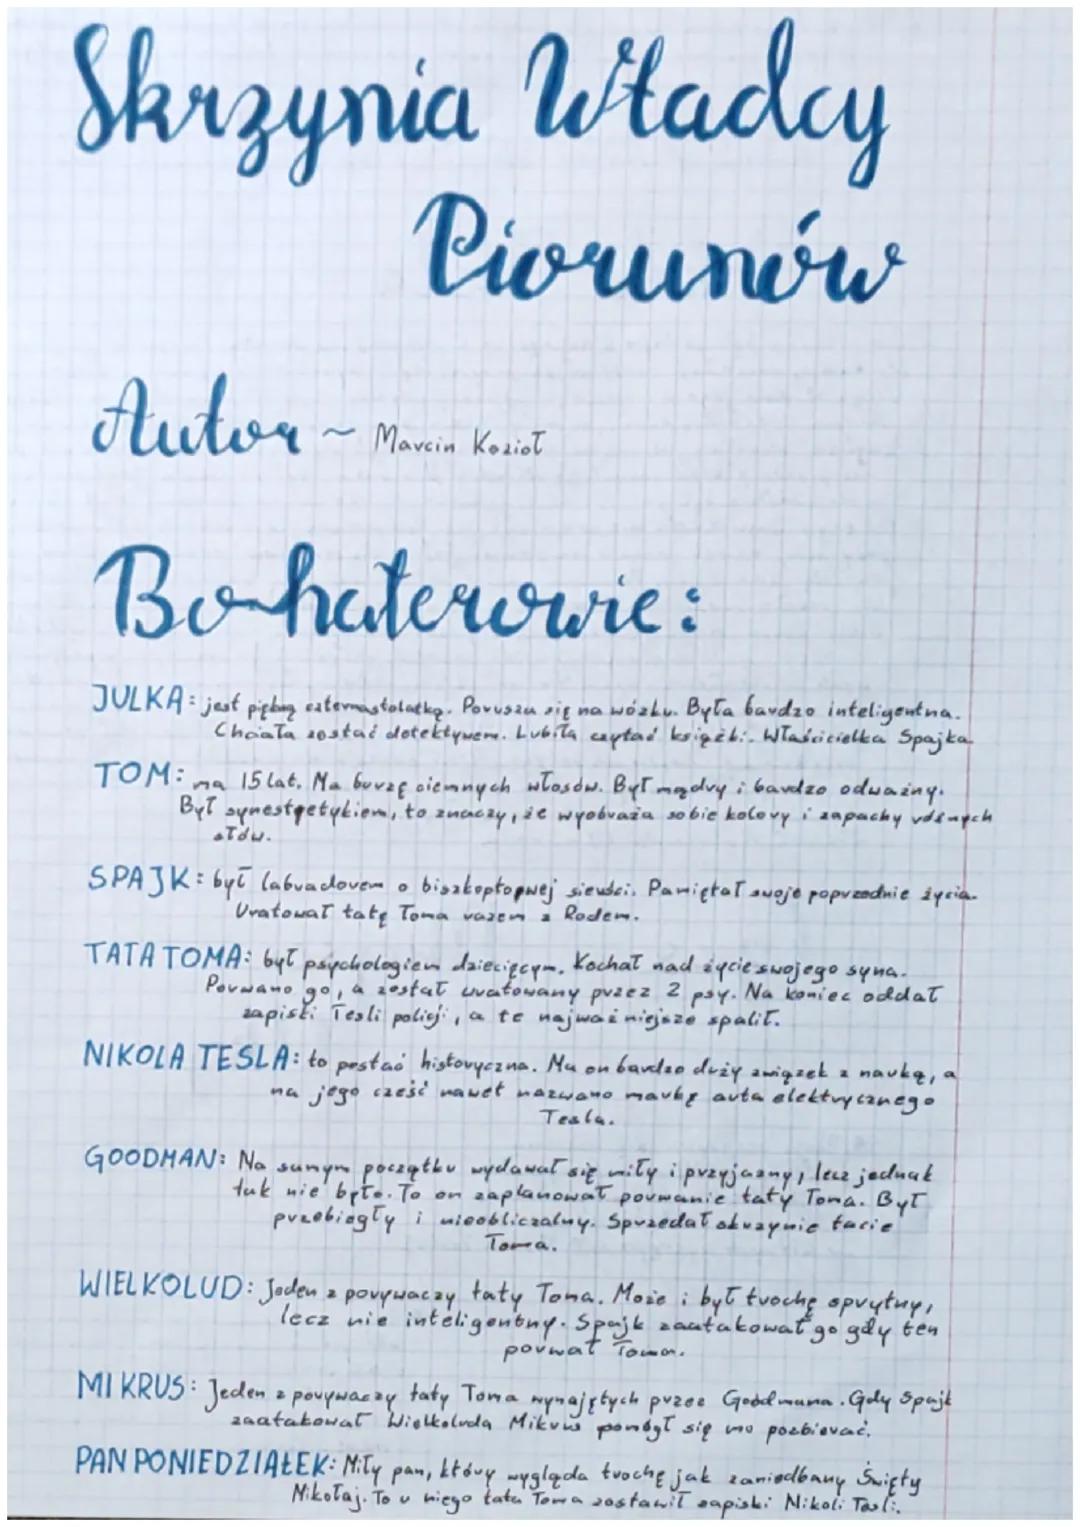 Skrzynia Władcy
Piorunów
Autor ~ Marcin Kozioł
Bohaterowie:
JULKA: jest piękną czternastolatką. Porusza się na wózku. Była bardzo inteligentna.
Chciała zostać detektywem. Lubiła czytać książki. Właścicielka Spajka.
TOM: ma 15 lat. Ma burzę ciemnych włosów. Był mądry i bardzo odważny.
Był synestetykiem, to znaczy, że wyobraża sobie kolory i zapachy różnych
słów.
SPAJK: był labradorem o biszkoptopwej sierści. Pamiętał swoje poprzednie życia.
Uratował tatę Toma razem z Rodem.
TATA TOMA: był psychologiem dziecięcym. Kochał nad życie swojego syna.
Porwano go, a został uratowany przez 2 psy. Na koniec oddał
zapiski Tesli policji, a te najważniejsze spalił.
NIKOLA TESLA: to postać historyczna. Ma on bardzo duży związek z nauką, a
na jego cześć nawet nazwano markę auta elektrycznego
Tesla.
GOODMAN: Na samym początku wydawał się miły i przyjazny, lecz jednak
tak nie było. To on zaplanował porwanie taty Toma. Był
przebiegły i nieobliczalny. Sprzedał skrzynię tacie
Toma.
WIELKOLUD: Jeden z porywaczy taty Toma. Może i był trochę sprytny,
lecz nie inteligentny. Spajk zaatakował go gdy ten
porwał Toma.
MIKRUS: Jeden z porywaczy taty Toma wynajętych przez Goodmana. Gdy Spajk
zaatakował Wielkoluda Mikrus pomógł się mo pozbierać.
PAN PONIEDZIAŁEK: Miły pan, który wygląda trochę jak zaniedbany Święty
Mikołaj. To u niego tata Toma zostawił zapiski Nikoli Tesli.